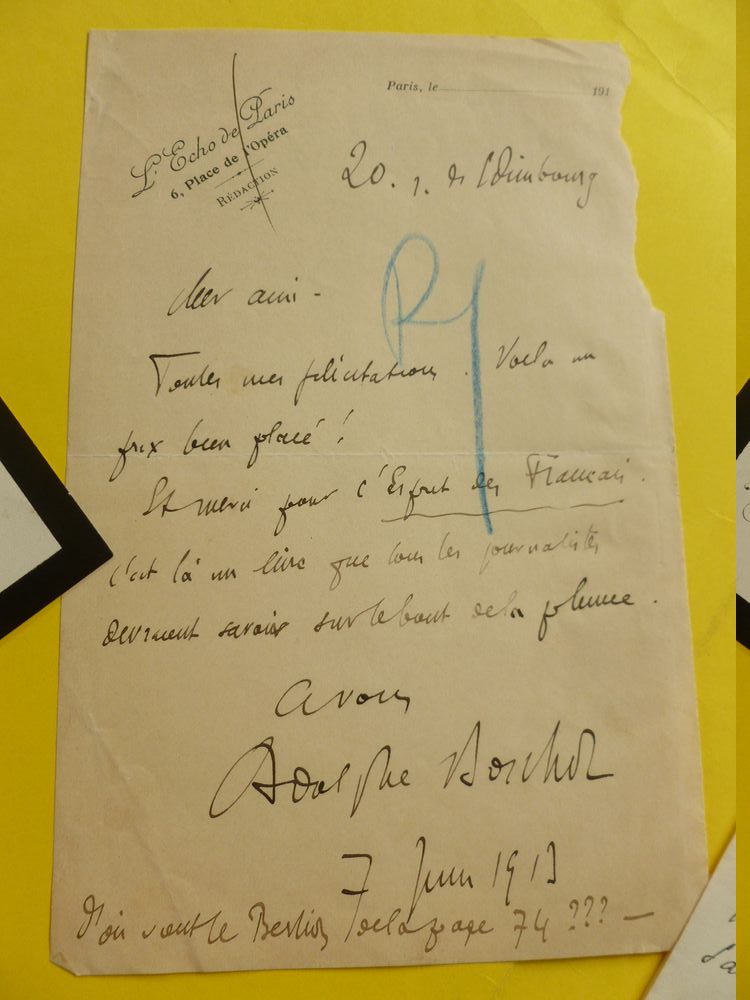 L'Echo de Paris
6, Place de l'Opéra
RÉDACTION
Paris, le 191
20. r. de l'Edimbourg
Cher ami -
Toutes mes félicitations. Voilà un
prix bien placé !
Et merci pour l'Esprit des Français.
C'est là un livre que tous les journalistes
devraient savoir sur le bout de la plume.
à vous
Adolphe Boschot
7 Juin 1913
D'où vient le Berlioz de la page 74 ??? —